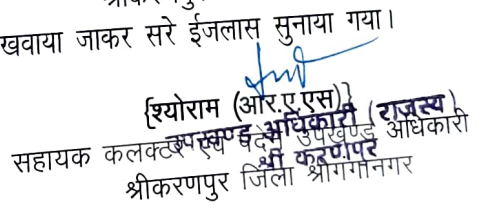 खवाया जाकर सरे ईजलास सुनाया गया।
{श्योराम (आर.ए.एस)}
उपखण्ड अधिकारी (राजस्व)
सहायक कलक्टर एवं पदेन उपखण्ड अधिकारी
श्री करणपुर
श्रीकरणपुर जिला श्रीगंगानगर